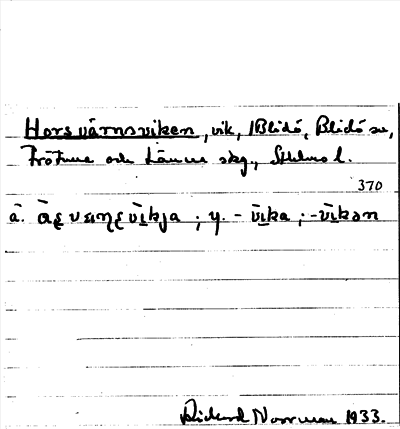 Horsvärnsviken, vik, Blidö, Blidö sn,
Frötuna och Länna skg., Sthlms l.
370
ä. vik̄ja ; y. - vīka ; -vīkən
Rickard Norrman 1933.